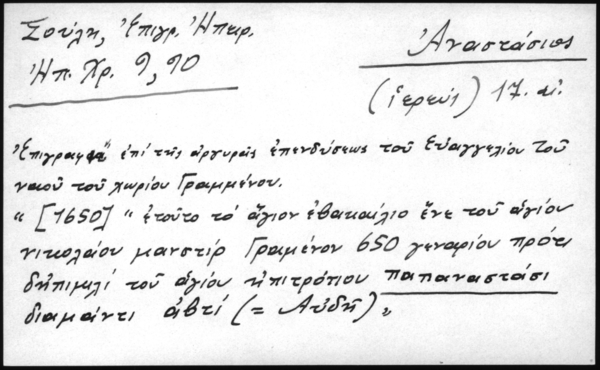 Σούλη, Ἐπιγρ. Ἠπειρ.
Ἠπ. Χρ. 9, 90
Ἀναστάσιος
(ἱερεύς) 17. αἰ.
Ἐπιγραφὴ ἐπὶ τῆς ἀργυρᾶς ἐπενδύσεως τοῦ Εὐαγγελίου τοῦ
ναοῦ τοῦ χωρίου Γραμμένου.
" [1650] " ἐτοῦτο τὸ ἅγιον ἐβακαίλιο ἔνε τοῦ ἁγίου
νικολάου μανστίρ Γραμένον 650 γεναρίου πρότι
δηπιμιλί τοῦ ἁγίου ἠπιτρόπιου παπαναστάσι
διαμάντι ἀβτί (= Αὐδῆ) "